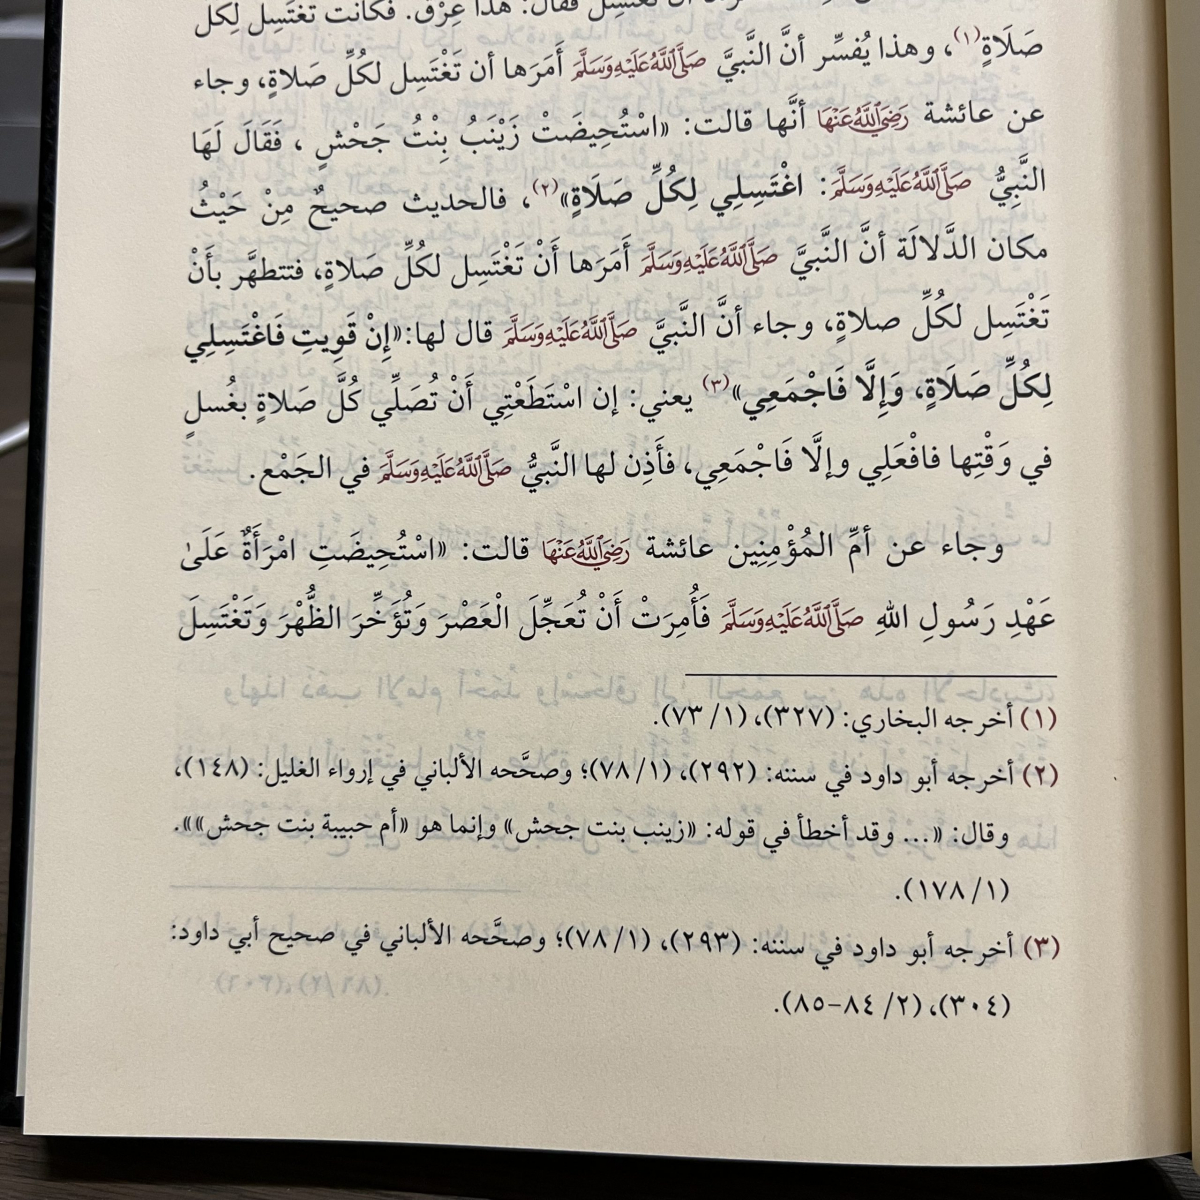 أن تغتسل فقال: هذا عِرْق. فكانت تغتسِل لِكل
صَلَاةٍ(١)، وهذا يُفسِّر أنَّ النَّبيَّ صَلَّى اللَّهُ عَلَيْهِ وَسَلَّمَ أَمَرَها أن تَغْتَسِل لكُلِّ صَلاةٍ، وجاء
عن عائشة رَضِيَ اللَّهُ عَنْهَا أنَّها قالت: «اسْتُحِيضَتْ زَيْنَبُ بِنْتُ جَحْشٍ ، فَقَالَ لَهَا
النَّبِيُّ صَلَّى اللَّهُ عَلَيْهِ وَسَلَّمَ: اغْتَسِلِي لِكُلِّ صَلَاةٍ»(٢)، فالحديث صحيحٌ مِنْ حَيْثُ
مكان الدَّلالَة أنَّ النَّبيَّ صَلَّى اللَّهُ عَلَيْهِ وَسَلَّمَ أَمَرَها أَنْ تَغْتَسِل لكُلِّ صَلاةٍ، فتتطهَّر بأَنْ
تَغْتَسِل لكُلِّ صلاةٍ، وجاء أنَّ النَّبيَّ صَلَّى اللَّهُ عَلَيْهِ وَسَلَّمَ قال لها:«إِنْ قَوِيتِ فَاغْتَسِلِي
لِكُلِّ صَلَاةٍ، وَإِلَّا فَاجْمَعِي»(٣) يعني: إن اسْتَطَعْتِي أَنْ تُصَلِّي كُلَّ صَلاةٍ بغُسلٍ
في وَقْتِها فافْعَلِي وإلَّا فَاجْمَعِي، فَأَذِن لها النَّبيُّ صَلَّى اللَّهُ عَلَيْهِ وَسَلَّمَ في الجَمْع.
وجاء عن أمِّ المُؤْمِنِين عائشة رَضِيَ اللَّهُ عَنْهَا قالت: «اسْتُحِيضَتِ امْرَأَةٌ عَلَىٰ
عَهْدِ رَسُولِ اللهِ صَلَّى اللَّهُ عَلَيْهِ وَسَلَّمَ فَأُمِرَتْ أَنْ تُعَجِّلَ الْعَصْرَ وَتُؤَخِّرَ الظُّهْرَ وَتَغْتَسِلَ
(١) أخرجه البخاري: (٣٢٧)، (١/ ٧٣).
(٢) أخرجه أبو داود في سننه: (٢٩٢)، (١/ ٧٨)؛ وصحَّحه الألباني في إرواء الغليل: (١٤٨)،
وقال: «... وقد أخطأ في قوله: «زينب بنت جحش» وإنما هو «أم حبيبة بنت جحش»».
(١/ ١٧٨).
(٣) أخرجه أبو داود في سننه: (٢٩٣)، (١/ ٧٨)؛ وصحَّحه الألباني في صحيح أبي داود:
(٣٠٤)، (٢/ ٨٤-٨٥).